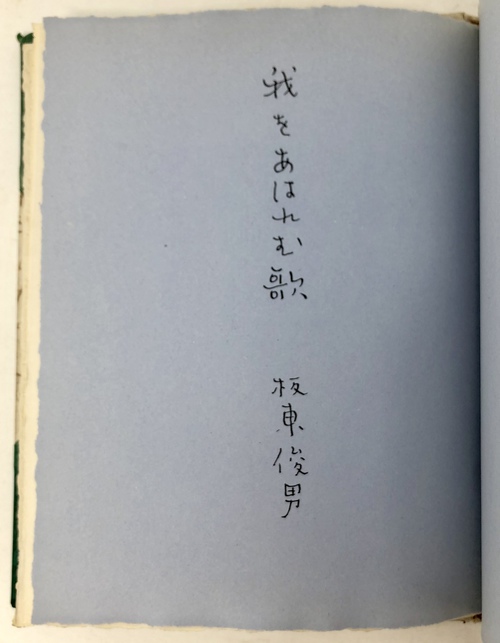 我をあはれむ歌
板東俊男